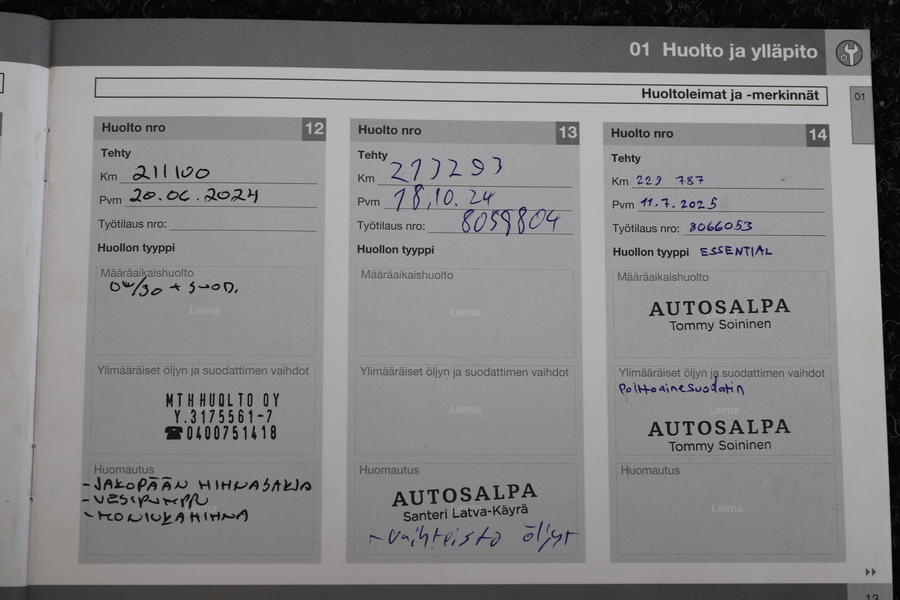 01 Huolto ja ylläpito
Huoltoleimat ja -merkinnät
01
Huolto nro 12
Tehty
Km 211100
Pvm 20.06.2024
Työtilaus nro:
Huollon tyyppi
Määräaikaishuolto
0W/30 + SUOD.
Leima
Ylimääräiset öljyn ja suodattimen vaihdot
MTH HUOLTO OY
Y.3175561-7
☎0400751418
Huomautus
-JAKOPÄÄN HIHNASARJA
-VESIPUMPPU
-MONIURAHIHNA
Huolto nro 13
Tehty
Km 217293
Pvm 18.10.24
Työtilaus nro: 8059804
Huollon tyyppi
Määräaikaishuolto
Leima
Ylimääräiset öljyn ja suodattimen vaihdot
Leima
Huomautus
AUTOSALPA
Santeri Latva-Käyrä
-vaihteisto öljyt
Huolto nro 14
Tehty
Km 229 787
Pvm 11.7.2025
Työtilaus nro: 8066053
Huollon tyyppi ESSENTIAL
Määräaikaishuolto
AUTOSALPA
Tommy Soininen
Ylimääräiset öljyn ja suodattimen vaihdot
Polttoainesuodatin
Leima
AUTOSALPA
Tommy Soininen
Huomautus
Leima
13